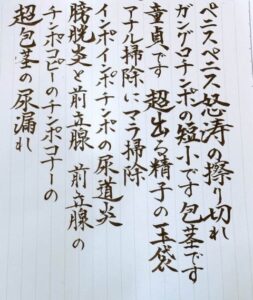 ペニスペニス怒涛の擦り切れ
ガングコチンポの短小です包茎です
童貞です 超出る精子の玉袋
アナル掃除にマラ掃除
インポインポチンポの尿道炎
膀胱炎と前立腺 前立腺の
チンポコピーのチンポコナーの
超包茎の尿漏れ